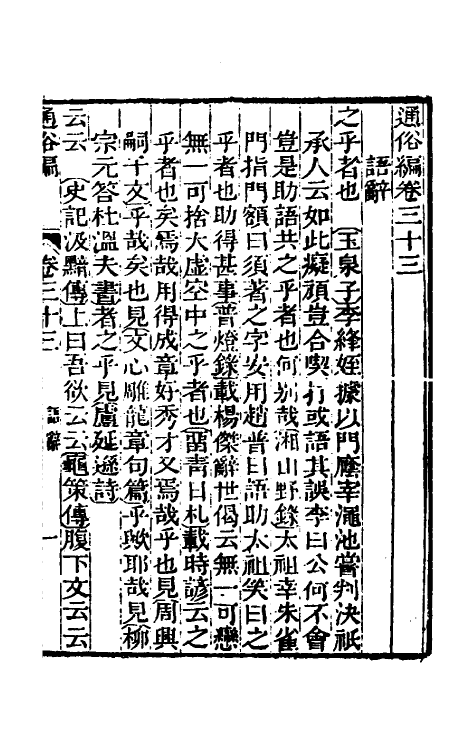 通俗編卷三十三
語辭
之乎者也〔玉泉子〕李絳姪據以門廕宰澠池嘗判決祇
承人云如此癡頑豈合喫打或語其誤李曰公何不會
豈是助語共之乎者也何別哉〔湘山野錄〕太祖幸朱雀
門指門額曰須著之字安用趙普曰語助太祖笑曰之
乎者也助得甚事〔普燈錄〕載楊傑辭世偈云無一可戀
無一可捨大虛空中之乎者也〔留靑日札〕載時諺云之
乎者也矣焉哉用得成章好秀才又焉哉乎也見周興
嗣千文乎哉矣也見文心雕龍章句篇乎歟耶哉見柳
宗元答杜溫夫書者之乎見盧延遜詩
云云〔史記汲黯傳〕上曰吾欲云云〔龜策傳〕腹下文云云
通俗編 卷三十三 語辭 一